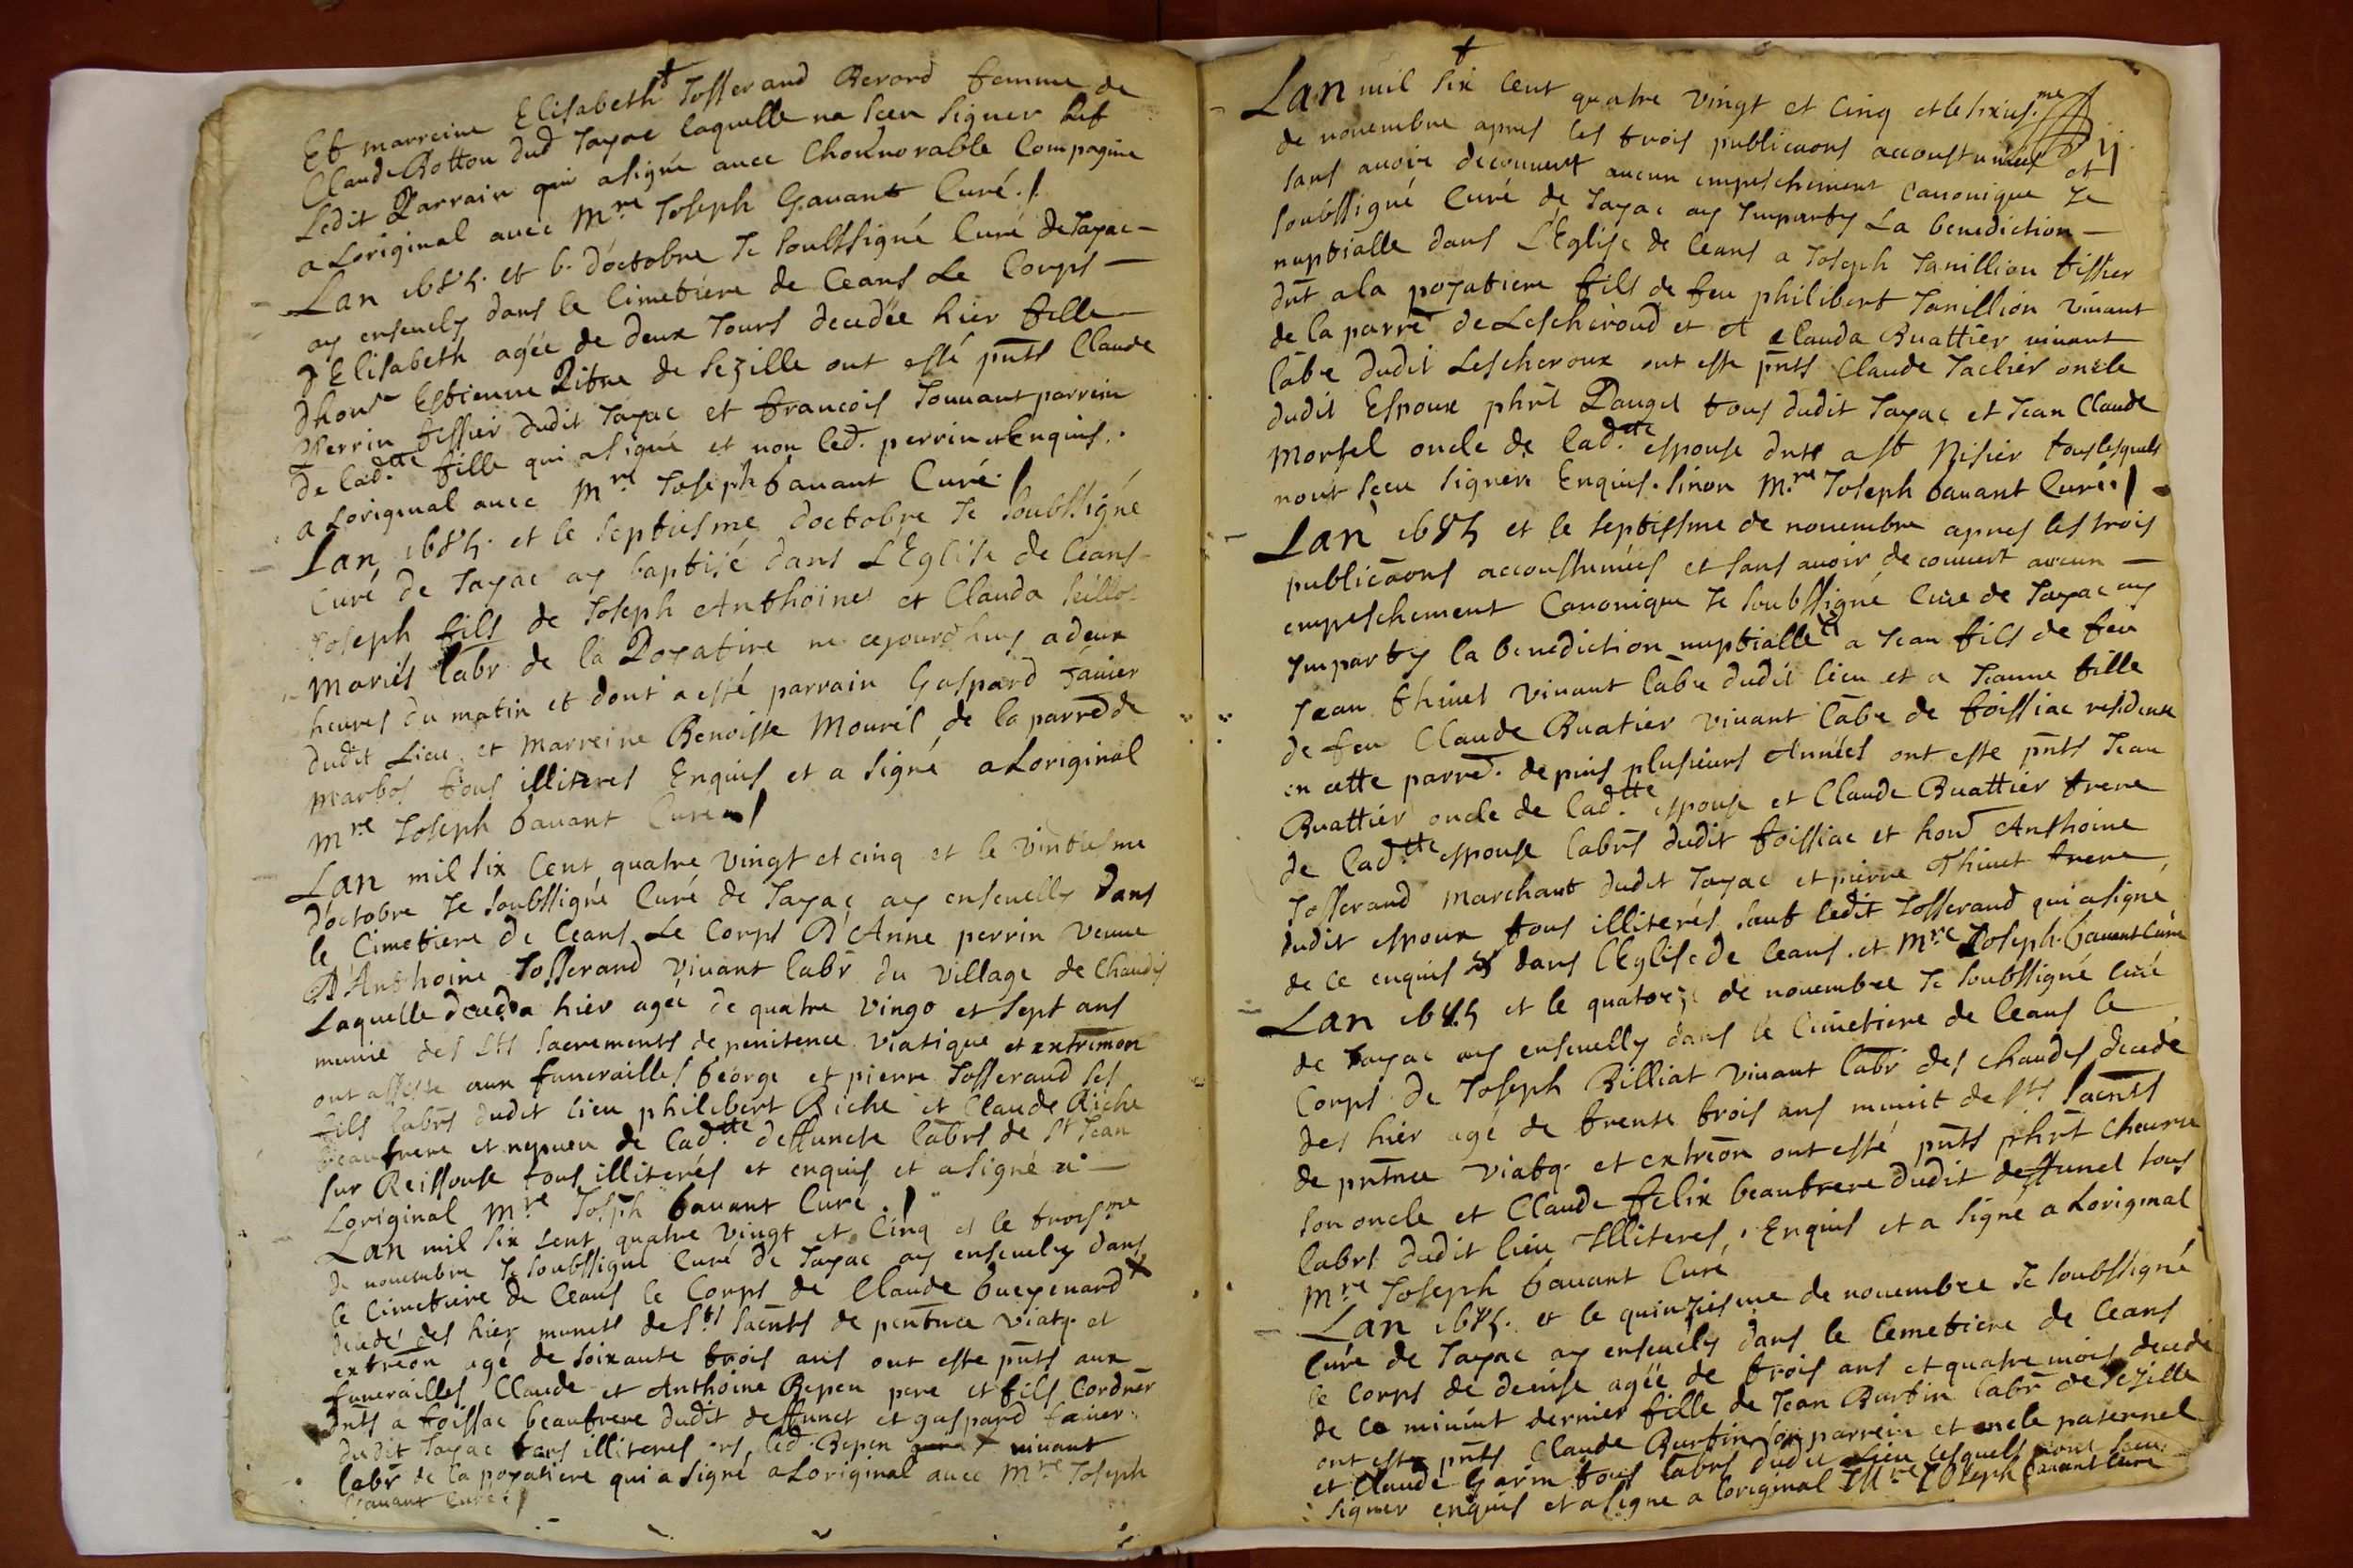 Et marreine Elisabeth Josserand Berard femme de
Claude Botton dud Jayac laquelle na sceu signer
Ledit Parrain qui a signé avec Lhonnorable Compagnie
a Loriginal avec Mre Joseph Gavant Curé./
Lan 1685. et 6. d'octobre Je soubssigné Curé de Jayac
ay ensevely dans le Cimetiere de Ceans Le Corps
d'Elisabeth agée de deux Jours decedée hier fille
d'honr Estienne Pitre de Sezille ont esté pnts Claude
Perrin tessier dudit Jayac et francois Jouuant parrein
de lad.tte fille qui a signé et non led. perrin Enquis.
a Loriginal avec Mre Joseph Gavant Curé./
Lan 1685. et le septiesme doctobre Je soubssigné
Curé de Jayac ay baptisé dans L'Eglise de Ceans
Joseph fils de Joseph Anthoine et Clauda
mariés labr de la Poyatire ne cejourdhuy a deux
heures du matin et dont a esté parrain Gaspard Favier
dudit Lieu et Marreine Benoiste Mourel de la parred de
marbos tous illiteres Enquis et a signé a Loriginal
Mre Joseph Gavant Curé /
Lan mil six Cent quatre vingt et cinq et le vintiesme
doctobre Je soubssigné Curé de Jayac ay ensevelly dans
le Cimetiere de Ceans Le Corps D'Anne perrin veuue
D'Anthoine Josserand vivant labr du village de Chaudes
Laquelle deceda hier agée de quatre vingo et sept ans
munie des sts sacrements de penitence viatique et extrimon
ont assisté aux funerailles George et pierre Josserand ses
fils labrs dudit lieu philibert Riche et Claude Riche
beaufrere et nepueu de lad.tte deffuncte labrs de st Jean
sur Reissouse tous illiterés et enquis et a signé a
Loriginal Mre Josph Gavant Curé./
Lan mil six Cent quatre vingt et Cinq et le troisme
de novembre Je soubssigné Curé de Jayac ay ensevely dans
le Cimetiere de Ceans le Corps de Claude Gueypenard
decedé des hier munits de sts saents de pentnce viatq. et
extreon agé de soixante trois ans ont esté pnts aux
funerailles Claude et Anthoine Repen pere et fils Cordner
dnts a foissac beaufrere dudit deffunct et gaspard favier
dudit Jayac tous illiteres led. Repen vivant
labr de la poyatiere qui a signé a Loriginal avec Mre Joseph
Gavant Curé./
Lan mil six Cent quatre vingt et Cinq et le sixies.me
de novembre apres les trois publicaons accoustumées et
sans avoir decouvert aucun empeschement Canonique Je
soubssigné Curé de Jayac ay Imparty La benediction
nuptialle dans L'Eglise de Ceans a Joseph Janillion tissier
dnt a la poyatiere fils de feu philibert Janillion vivant
de la parre de Lescheroud et A Clauda Buattier vivant
labre dudit Lescheroux ont esté pnts Claude Jaclier oncle
dudit Espoux phrt Pauget tous dudit Jayac et Jean Claude
Mortel oncle de lad.tte espouse dntt a st Nisier tous lesquels
nont sceu signer Enquis. sinon M.re Joseph Gavant Curé./
Lan 1685 et le septiesme de novembre apres les trois
publicaons accoustumées et sans avoir decouvert aucun
empeschement Canonique Je soubssigné Curé de Jayac ay
Imparty la benediction nuptialle a Jean fils de feu
Jean thivet vivant labre dudit lieu et a Jeanne fille
de feu Claude Buatier vivant labre de foissiac residente
en cette parred. depuis plusieurs Années ont esté pnts Jean
Buattier oncle de lad.tte espouse et Claude Buattier frere
de lad.tte espouse labrs dudit foissiac et hond Anthoine
Josserand Marchant dudit Jayac et pierre Thivet frere
dudit espoux tous illiterés sauf ledit Josserand qui a signé
de ce enquis dans L'Eglise de Ceans. et Mre Joseph. Gavant Curé
Lan 1685 et le quatorze de novembre Je soubssigné curé
de Jayac ay ensevelly dans le Cimetiere de Ceans le
Corps de Joseph Billiat vivant labr des chaudes decedé
des hier agé de trente trois ans munit de sts saents
de pntnce viatq. et extreon ont esté pnts phrt
son oncle et Claude felix beaufrere dudit deffunct tous
labrs dudit lieu Illiteres, Enquis et a signé a Loriginal
Mre Joseph Gavant Curé
Lan 1685. et le quinziesme de novembre Je soubssigné
Curé de Jayac ay ensevely dans le Cemetiere de Ceans
le Corps de denise agée de trois ans et quatre mois decedé
de ce minuit dernier fille de Jean Burtin labr de Sezille
ont esté pnts Claude Burtin son parrein et oncle paternel
et Claude Garin tous labrs dudit Lieu lesquels nont sceu
signer enquis et a signe a loriginal Mre Joseph Gavant Curé